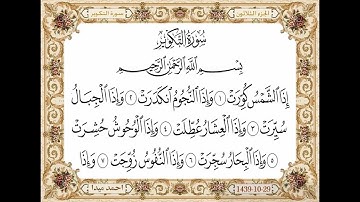 الجزء الثلاثون
سورة التكوير
سُورَةُ التَّكْوِيرِ
بِسْمِ اللَّهِ الرَّحْمَٰنِ الرَّحِيمِ
إِذَا الشَّمْسُ كُوِّرَتْ ١ وَإِذَا النُّجُومُ انكَدَرَتْ ٢ وَإِذَا الْجِبَالُ
سُيِّرَتْ ٣ وَإِذَا الْعِشَارُ عُطِّلَتْ ٤ وَإِذَا الْوُحُوشُ حُشِرَتْ
٥ وَإِذَا الْبِحَارُ سُجِّرَتْ ٦ وَإِذَا النُّفُوسُ زُوِّجَتْ ٧ وَإِذَا
احمد ميدا
1439-10-29